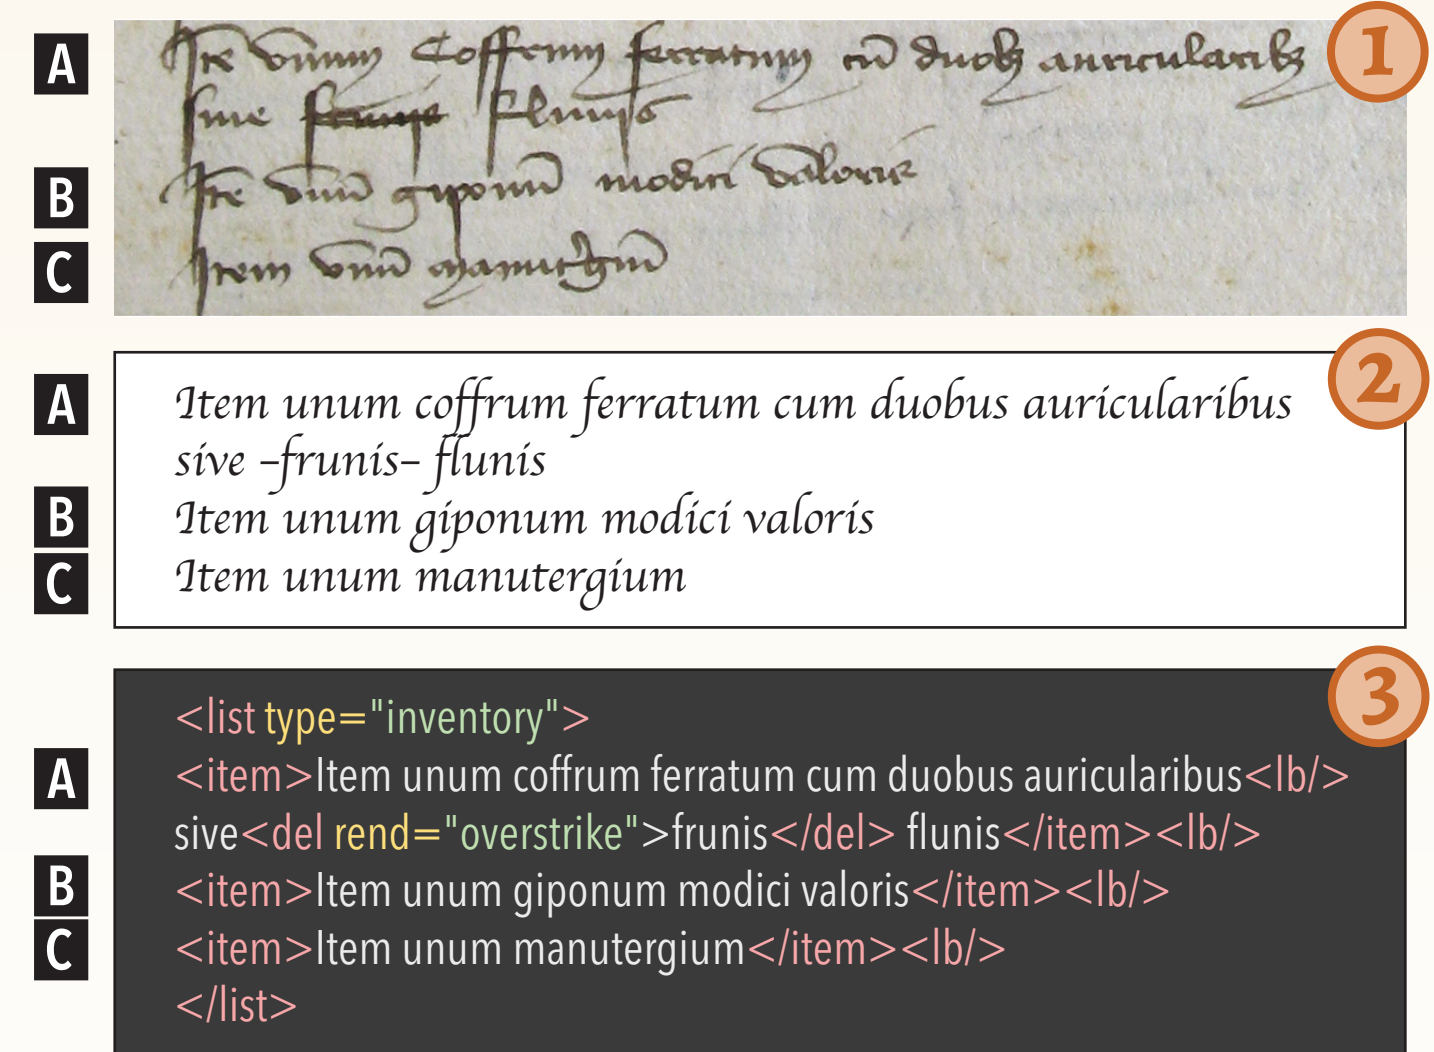 1
A
Itē vnum Coffrum ferratum cū duobꝫ auricularibꝫ
siue frunis flunis
B
Itē vnū giponū modici valoris
C
Item vnū manutgiū
2
A
Item unum coffrum ferratum cum duobus auricularibus
sive –frunis– flunis
B
Item unum giponum modici valoris
C
Item unum manutergium
3
<list type="inventory">
A
<item>Item unum coffrum ferratum cum duobus auricularibus<lb/>
sive<del rend="overstrike">frunis</del> flunis</item><lb/>
B
<item>Item unum giponum modici valoris</item><lb/>
C
<item>Item unum manutergium</item><lb/>
</list>